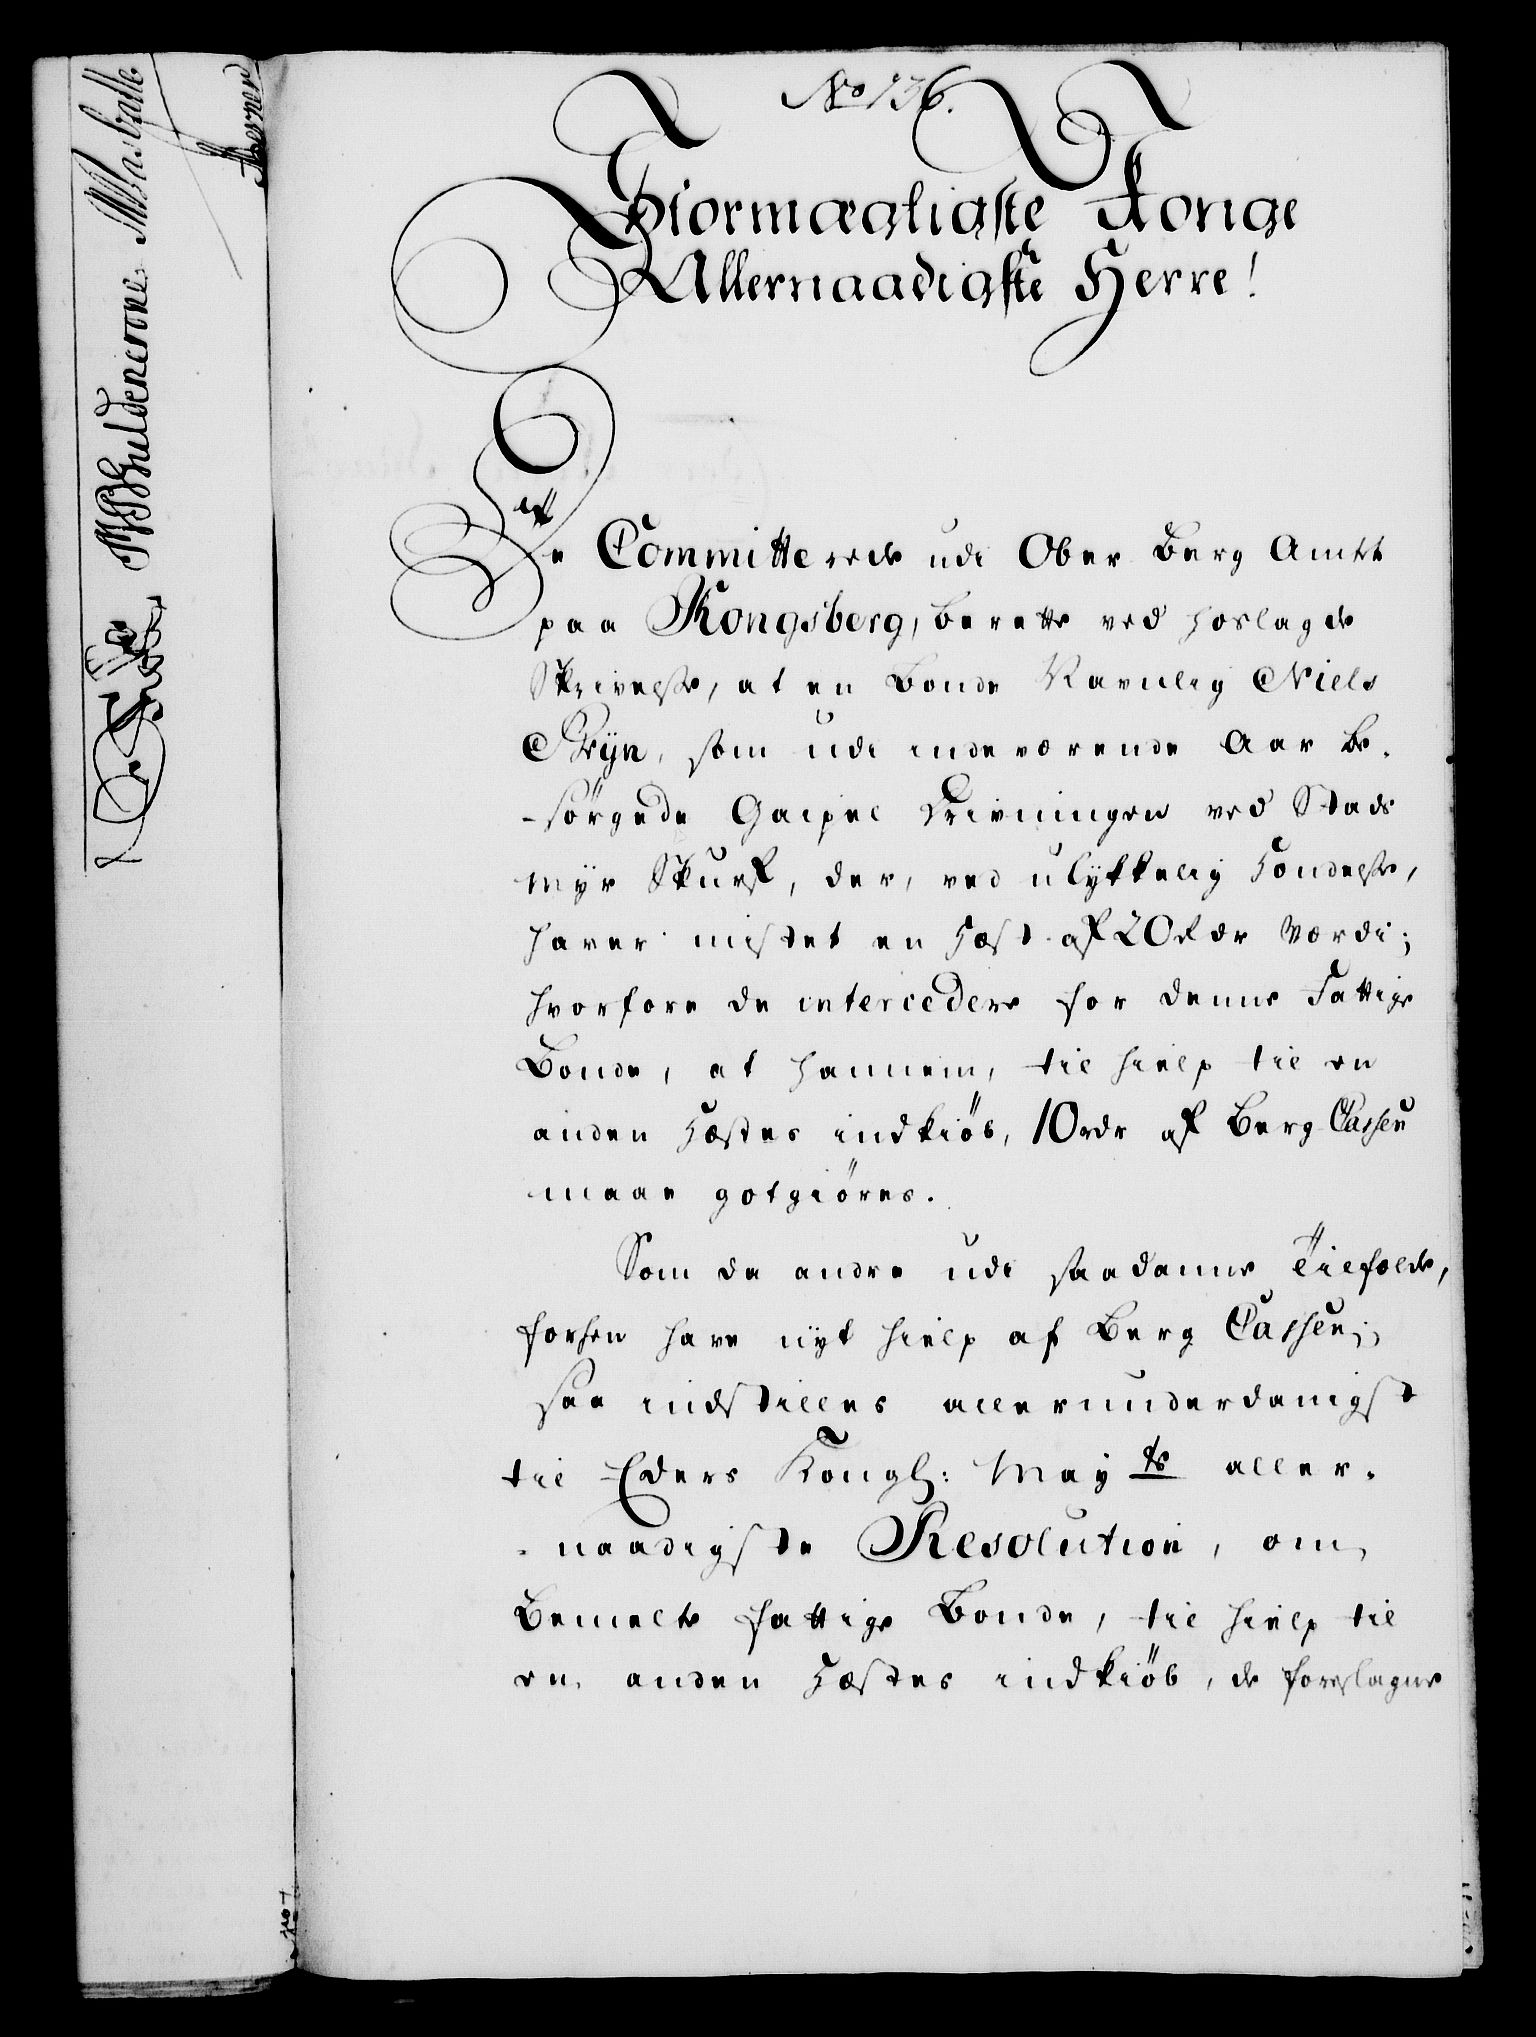 No 136.
Stormægtigste Konge
Allernaadigste Herre!
De Committerede udi Ober Berg Amtet
paa Kongsberg, berette ved hoslagde
Skrivelse, at en Bonde Navnlig Niels
Skryn, som udi indeværende Aar be-
-sörgede Gaipel Drivningen ved Stads
myr Skurf, der, ved ulykkelig Hændelse,
haver mistet en Hæst af 20 rdr Værdi;
hvorfore de intercedere for denne Fattige
Bonde, at hannem, til hielp til en
anden Hæstes indkiöb, 10 rdr af Berg Cassen
maae gotgiöres.
Som de andre udi saadanne Tilfælde,
forhen have nyt hielp af Berg Cassen;
saa indstilles allerunderdanigst
til Eders Kongl: Mayts aller-
-naadigste Resolution, om
Bemelte fattige Bonde, til hielp til
en anden Hæstes indkiöb, de foreslagne